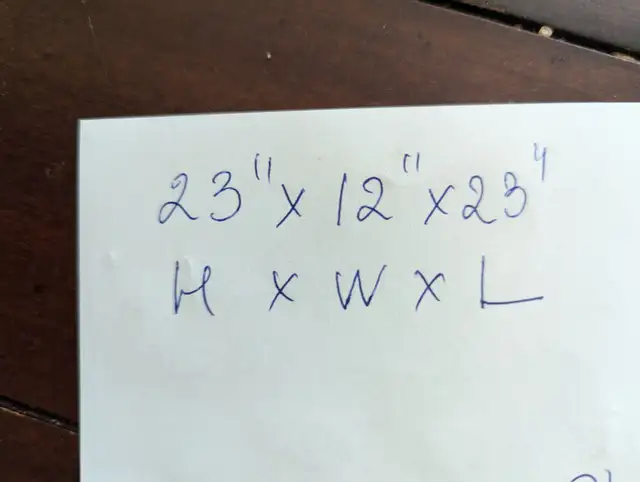 23" x 12" x 23"
H x W x L